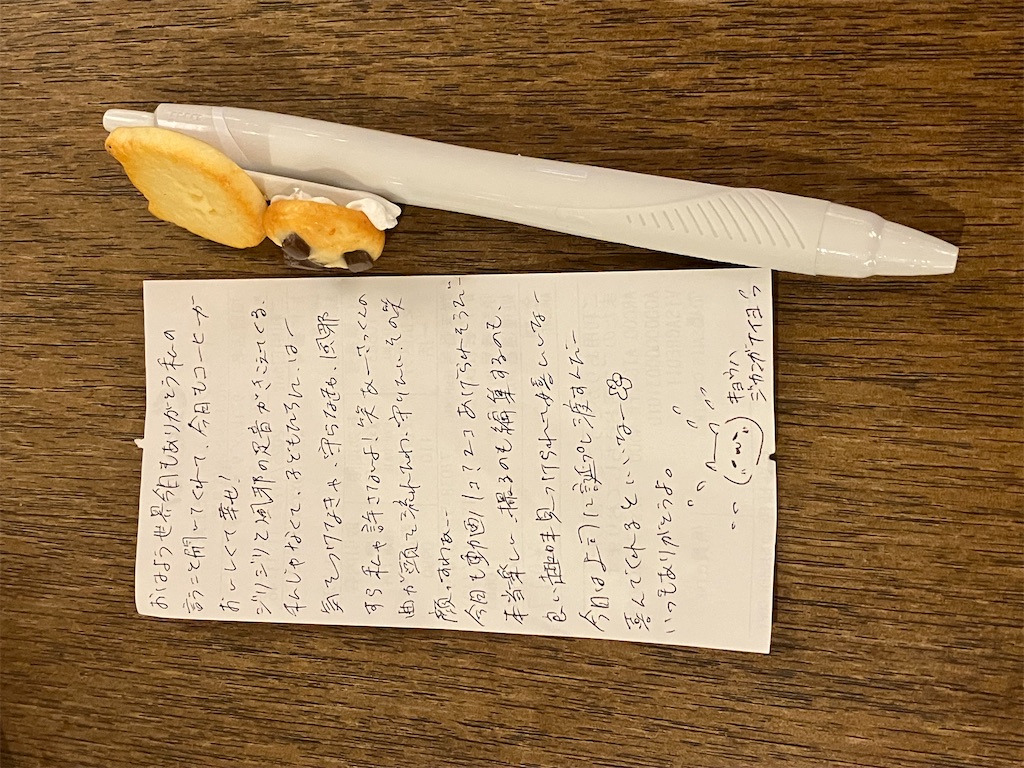 おはよう世界今日もありがとう私の
言うこと聞いてくれて、今日もコーヒーが
おいしくて幸せ!
ジリジリと風邪の足音がきこえてくる。
私じゃなくて、子どもたちん、はー
気をつけてなきゃ、守らなきゃ、風邪
すら私が許さないよ!笑 あーさっくんの
曲が頭で流れてるわ、守りたいその笑
顔、すれはー
今日も動画1こ?2こあげられそうだー
本当楽しい、撮るのも編集するのも、
良い趣味見つけられたー嬉しいなー
今日は上司に誕プレ渡すんだー
喜んでくれるといいなー
いつもありがとうよ。
キョウハ
ジカンガナイヨウ